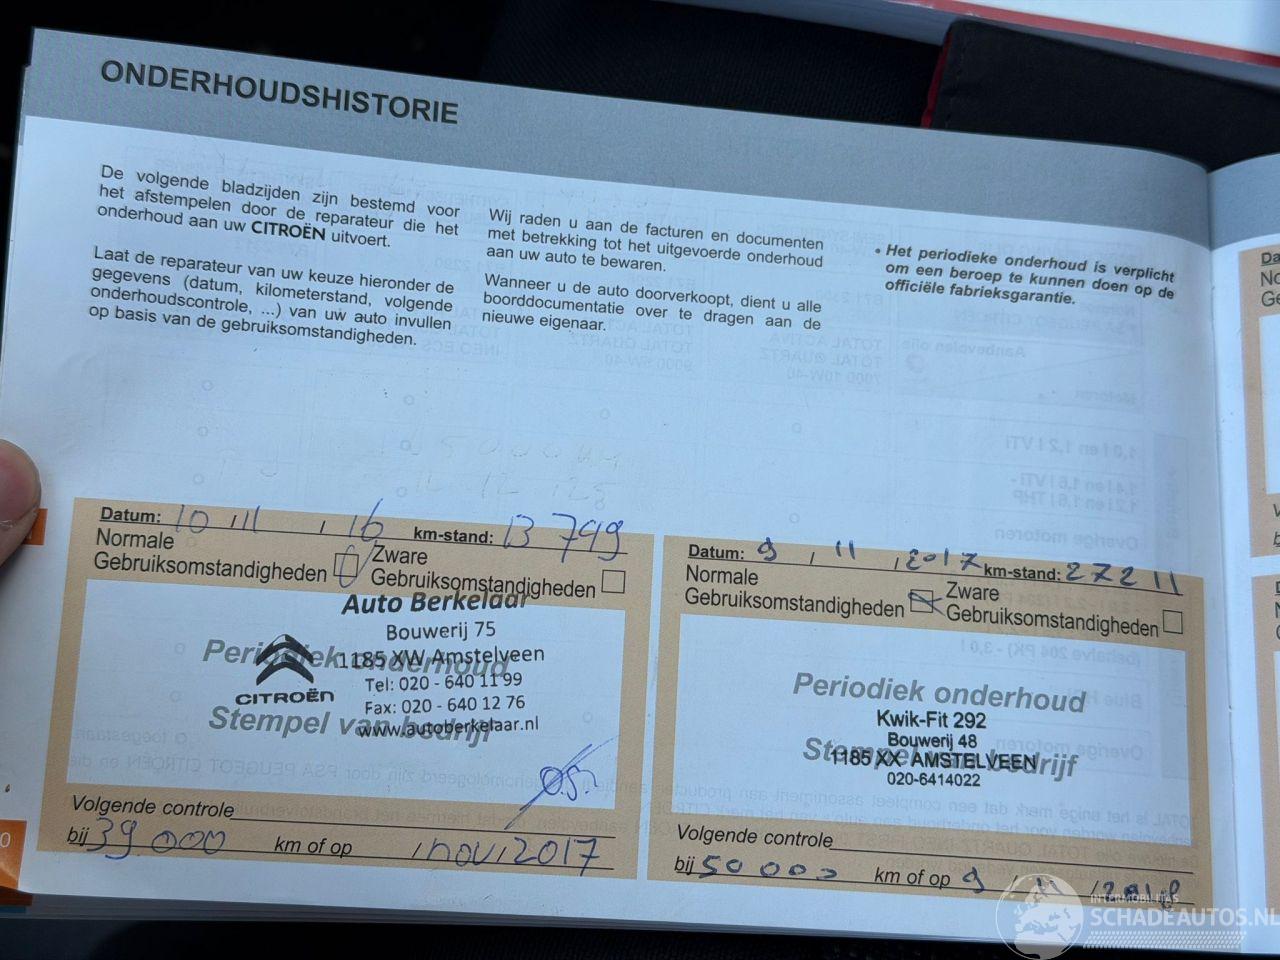 ONDERHOUDSHISTORIE
De volgende bladzijden zijn bestemd voor
het afstempelen door de reparateur die het
onderhoud aan uw CITROËN uitvoert.
Laat de reparateur van uw keuze hieronder de
gegevens (datum, kilometerstand, volgende
onderhoudscontrole, ...) van uw auto invullen
op basis van de gebruiksomstandigheden.
Wij raden u aan de facturen en documenten
met betrekking tot het uitgevoerde onderhoud
aan uw auto te bewaren.
Wanneer u de auto doorverkoopt, dient u alle
boorddocumentatie over te dragen aan de
nieuwe eigenaar.
• Het periodieke onderhoud is verplicht
om een beroep te kunnen doen op de
officiële fabrieksgarantie.
Datum: 10 , 11 , 16 km-stand: 13 749
Normale
Gebruiksomstandigheden
Zware
Gebruiksomstandigheden
Auto Berkelaar
Bouwerij 75
1185 XW Amstelveen
Tel: 020 - 640 11 99
Fax: 020 - 640 12 76
www.autoberkelaar.nl
CITROËN
Periodiek onderhoud
Stempel van bedrijf
Volgende controle
bij 39 000 km of op / nov / 2017
Datum: 9 , 11 , 2017 km-stand: 27211
Normale
Gebruiksomstandigheden
Zware
Gebruiksomstandigheden
Periodiek onderhoud
Kwik-Fit 292
Bouwerij 48
Stempel van bedrijf
1185 XX AMSTELVEEN
020-6414022
Volgende controle
bij 50 000 km of op 9 / 11 / 2018
INTERMOBILITAS
SCHADEAUTOS.NL